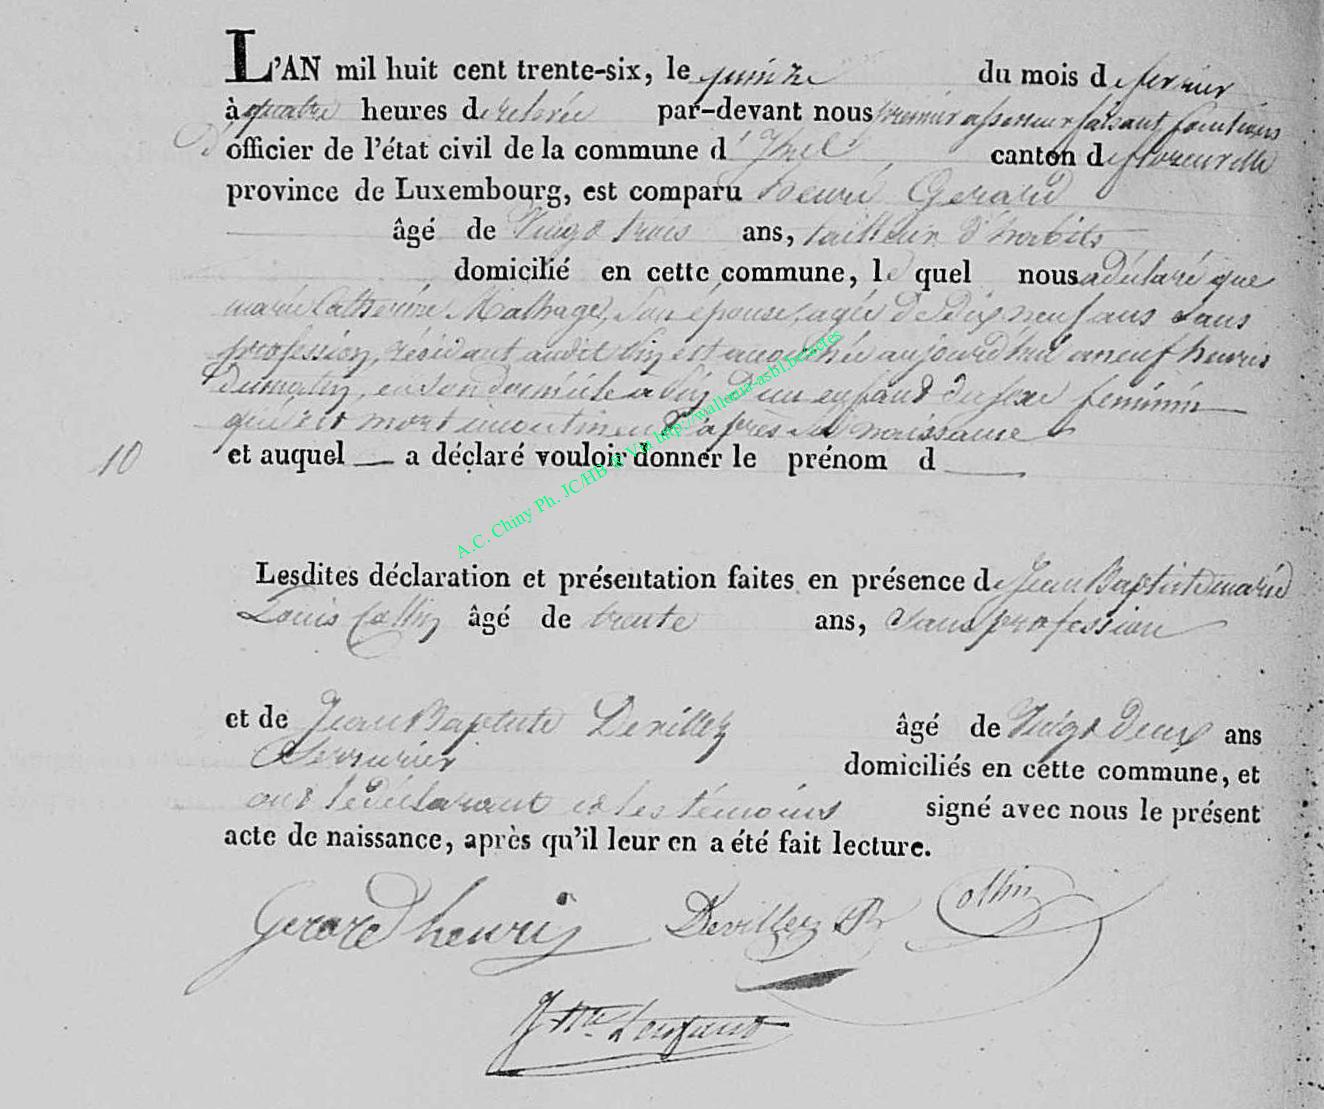 L'AN mil huit cent trente-six, le quinze du mois de fevrier
à quatre heures de relevée par-devant nous premier assesseur faisant fonctions
d' officier de l'état civil de la commune d' canton de florenville
province de Luxembourg, est comparu henri Gerard
âgé de Vingt trois ans, tailleur d'habits
domicilié en cette commune, le quel nous a déclaré que
marie Catherine son épouse, agée de dix neuf ans sans
profession, résidant audit est accouchée aujourd'hui a neuf heures
du matin, en son domicile a d'un enfant du sexe feminin
qui est mort incontinent après sa naissance
10 et auquel a déclaré vouloir donner le prénom d
A.C. Chiny Ph. JC/HB ® Via http://wallonia-asbl.be/actes
Lesdites déclaration et présentation faites en présence de Jean Baptiste marie
Louis Collin âgé de trente ans, sans profession
et de Jean Baptiste Devillez âgé de Vingt deux ans
Serrurier domiciliés en cette commune, et
ont le déclarant et les témoins signé avec nous le présent
acte de naissance, après qu'il leur en a été fait lecture.
Gerard henri Devillez Collin